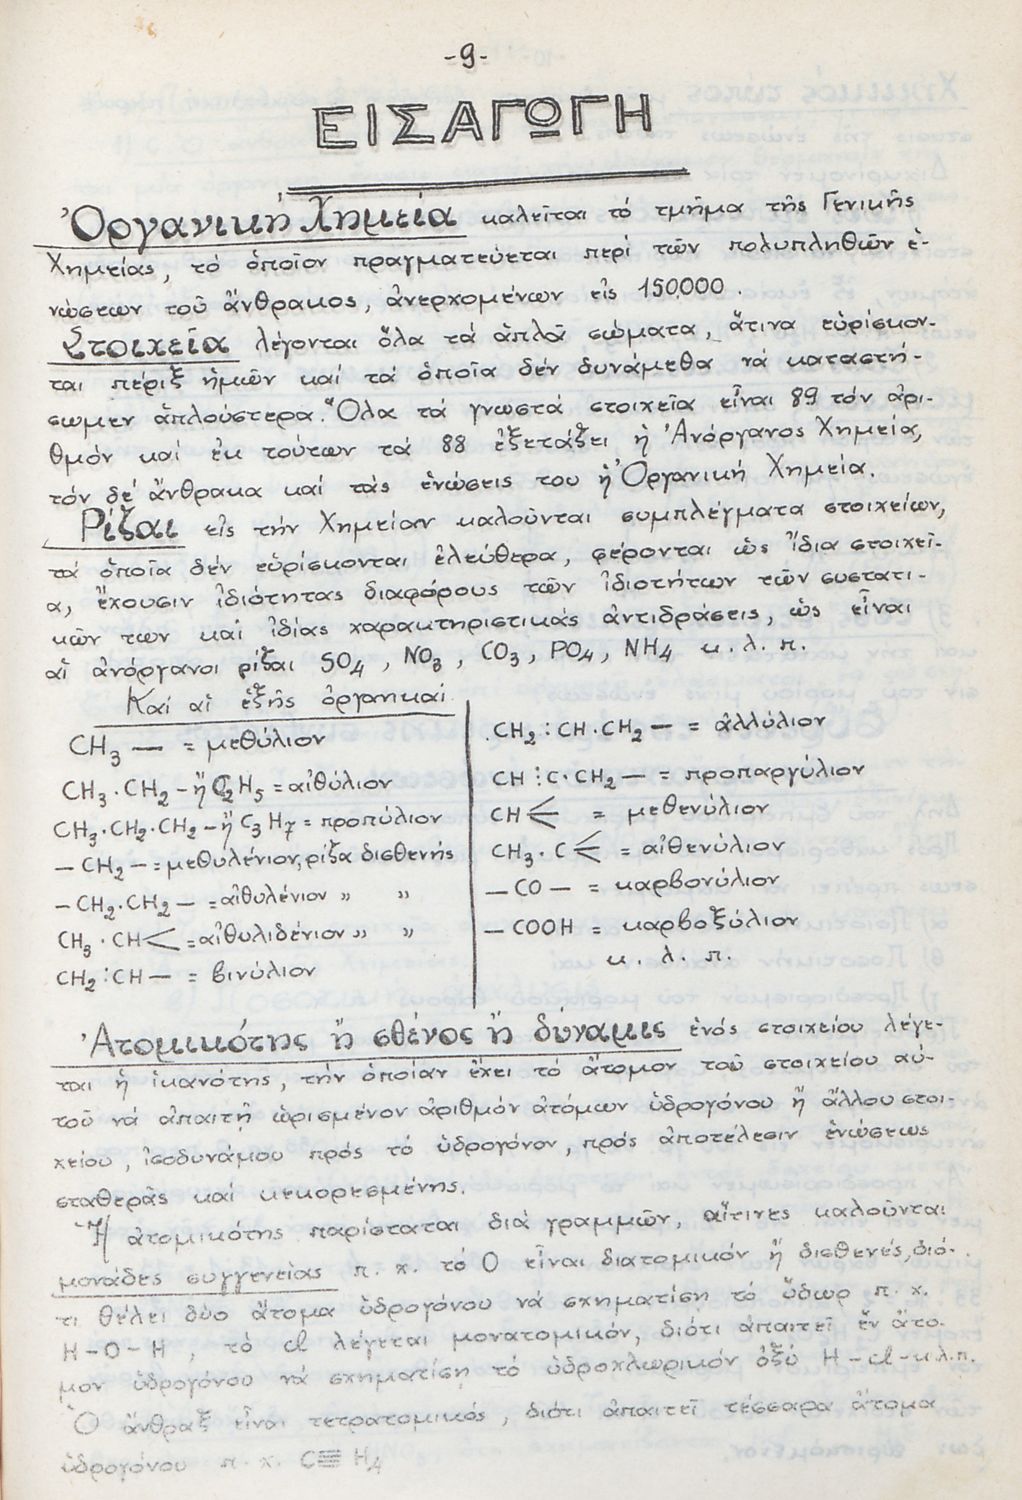 -9-
ΕΙΣΑΓΩΓΗ
Ὀργανική Χημεία καλεῖται τό τμῆμα τῆς Γενικῆς
Χημείας, τό ὁποῖον πραγματεύεται περί τῶν πολυπληθῶν ἑ-
νώσεων τοῦ ἄνθρακος, ἀνερχομένων εἰς 150.000.
Στοιχεῖα λέγονται ὅλα τά ἁπλᾶ σώματα, ἅτινα εὑρίσκον-
ται πέριξ ἡμῶν καί τά ὁποῖα δέν δυνάμεθα νά καταστή-
σωμεν ἁπλούστερα. Ὅλα τά γνωστά στοιχεῖα εἶναι 89 τόν ἀρι-
θμόν καί ἐκ τούτων τά 88 ἐξετάζει ἡ Ἀνόργανος Χημεία,
τόν δέ ἄνθρακα καί τάς ἑνώσεις του ἡ Ὀργανική Χημεία.
Ρίζαι εἰς τήν Χημείαν καλοῦνται συμπλέγματα στοιχείων,
τά ὁποῖα δέν εὑρίσκονται ἐλεύθερα, φέρονται ὡς ἴδια στοιχεῖ-
α, ἔχουσιν ἰδιότητας διαφόρους τῶν ἰδιοτήτων τῶν συστατι-
κῶν των καί ἰδίας χαρακτηριστικάς ἀντιδράσεις, ὡς εἶναι
αἱ ἀνόργανοι ρίζαι SO4, NO3, CO3, PO4, NH4 κ.λ.π.
Καί αἱ ἑξῆς ὀργανικαί
CH3 — = μεθύλιον
CH3·CH2-ἤ C2H5 = αἰθύλιον
CH3·CH2·CH2-ἤ C3H7 = προπύλιον
-CH2 — = μεθυλένιον, ρίζα δισθενής
-CH2·CH2 — = αἰθυλένιον „ „
CH3·CH< = αἰθυλιδένιον „ „
CH2:CH — = βινύλιον
CH2:CH·CH2 — = ἀλλύλιον
CH⋮C·CH2 — = προπαργύλιον
CH⋲ = μεθενύλιον
CH3·C⋲ = αἰθενύλιον
—CO— = καρβονύλιον
—COOH = καρβοξύλιον
κ. λ. π.
Ἀτομικότης ἤ σθένος ἤ δύναμις ἑνός στοιχείου λέγε-
ται ἡ ἱκανότης, τήν ὁποίαν ἔχει τό ἄτομον τοῦ στοιχείου αὐ-
τοῦ νά ἀπαιτῇ ὡρισμένον ἀριθμόν ἀτόμων ὑδρογόνου ἤ ἄλλου στοι-
χείου, ἰσοδυνάμου πρός τό ὑδρογόνον, πρός ἀποτέλεσιν ἑνώσεως
σταθερᾶς καί κεκορεσμένης.
Ἡ ἀτομικότης παρίσταται διά γραμμῶν, αἵτινες καλοῦνται
μονάδες συγγενείας π.χ. τό O εἶναι διατομικόν ἤ δισθενές, διό-
τι θέλει δύο ἄτομα ὑδρογόνου νά σχηματίσῃ τό ὕδωρ π.χ.
H-O-H, τό cl λέγεται μονατομικόν, διότι ἀπαιτεῖ ἕν ἄτο-
μον ὑδρογόνου νά σχηματίσῃ τό ὑδροχλωρικόν ὀξύ H-cl-κ.λ.π.
Ὁ ἄνθραξ εἶναι τετρατομικός, διότι ἀπαιτεῖ τέσσαρα ἄτομα
ὑδρογόνου π.χ. C≣H4